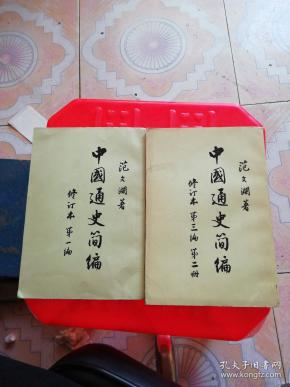 范文澜著
中國通史简編
修订本 第一編
范文澜著
中國通史简編
修订本 第三編 第二册
孔夫子旧书网